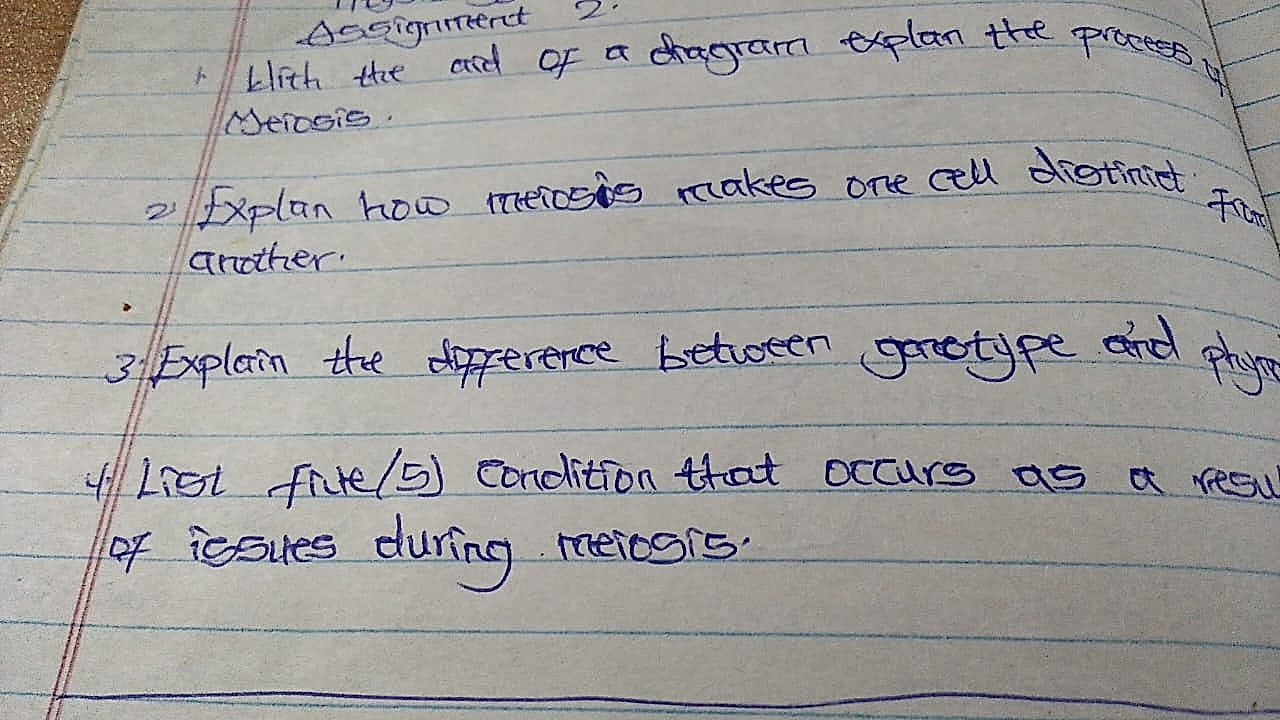 Assignment 2.
1. With the aid of a diagram explan the process of
Meiosis.
2. Explan how meiosis makes one cell distinct from
another.
3. Explain the difference between genotype and
4. List five (5) condition that occurs as a resu
of issues during meiosis.